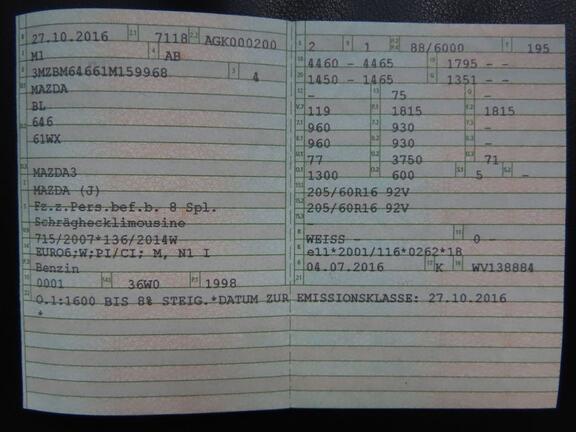 27.10.2016 7118 AGK000200
M1 AB
3MZBM64661M159968 4
MAZDA
BL
646
61WX
MAZDA3
MAZDA (J)
Fz.z.Pers.bef.b. 8 Spl.
Schräghecklimousine
715/2007*136/2014W
EURO6;W;PI/CI; M, N1 I
Benzin
0001 36W0 1998
2 1 88/6000 195
4460 - 4465 1795 - -
1450 - 1465 1351 - -
- 75 -
119 1815 1815
960 930 -
960 930 -
77 3750 71
1300 600 5 -
205/60R16 92V
205/60R16 92V
-
WEISS - 0 -
e11*2001/116*0262*18
04.07.2016 K WV138884
O.1:1600 BIS 8% STEIG.*DATUM ZUR EMISSIONSKLASSE: 27.10.2016
*